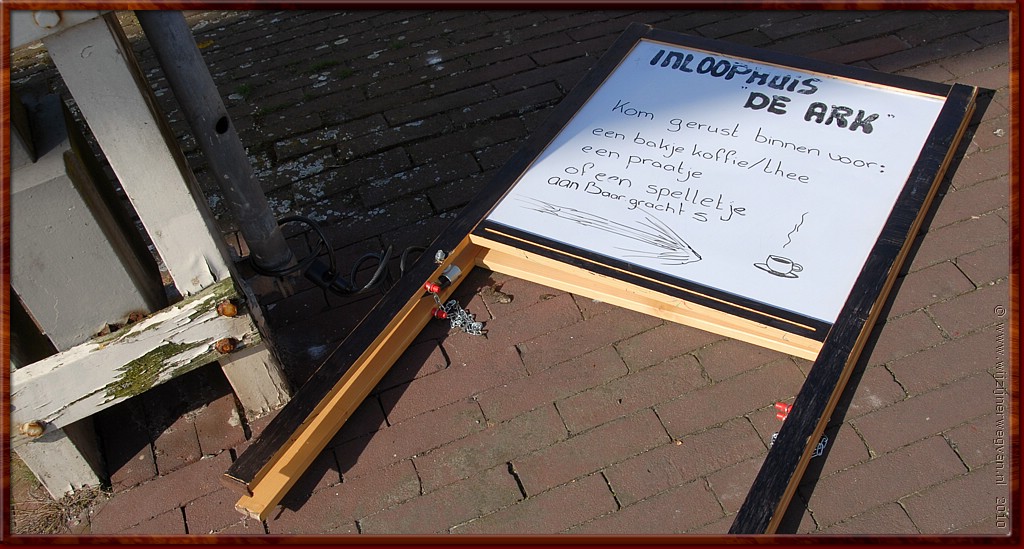 INLOOPHUIS
"DE ARK"
Kom gerust binnen voor:
een bakje koffie/thee
een praatje
of een spelletje
aan Baangracht 5
© www.wijzijnerwegvan.nl 2010